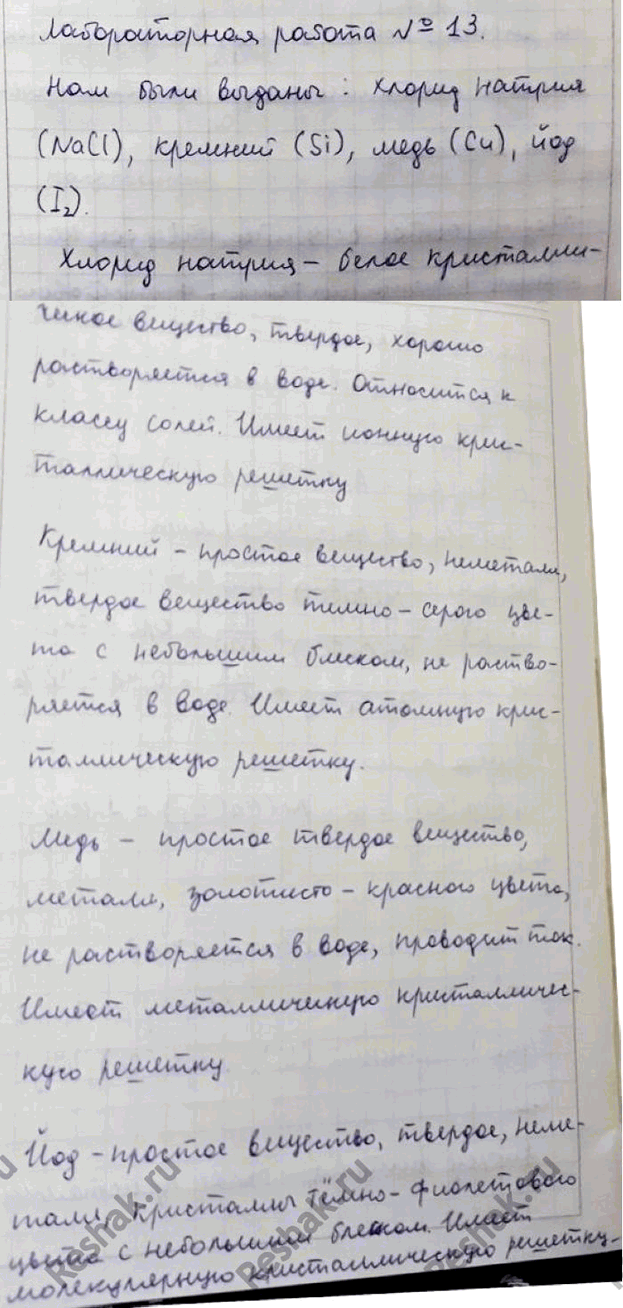 Лабораторная работа № 13.
Нам были выданы: хлорид натрия
(NaCl), кремний (Si), медь (Cu), йод
(I₂).
Хлорид натрия – белое кристалли-
ческое вещество, твердое, хорошо
растворяется в воде. Относится к
классу солей. Имеет ионную крис-
таллическую решетку
Кремний – простое вещество, неметалл,
твердое вещество темно-серого цве-
та с небольшим блеском, не раство-
ряется в воде. Имеет атомную крис-
таллическую решетку.
Медь – простое твердое вещество,
металл, золотисто-красного цвета,
не растворяется в воде, проводит ток.
Имеет металлическую кристалличес-
кую решетку.
Йод – простое вещество, твердое, неме-
талл, Кристаллы тёмно-фиолетового
цвета с небольшим блеском. Имеет
молекулярную кристаллическую решетку.
Reshak.ru
Reshak.ru
Reshak.ru